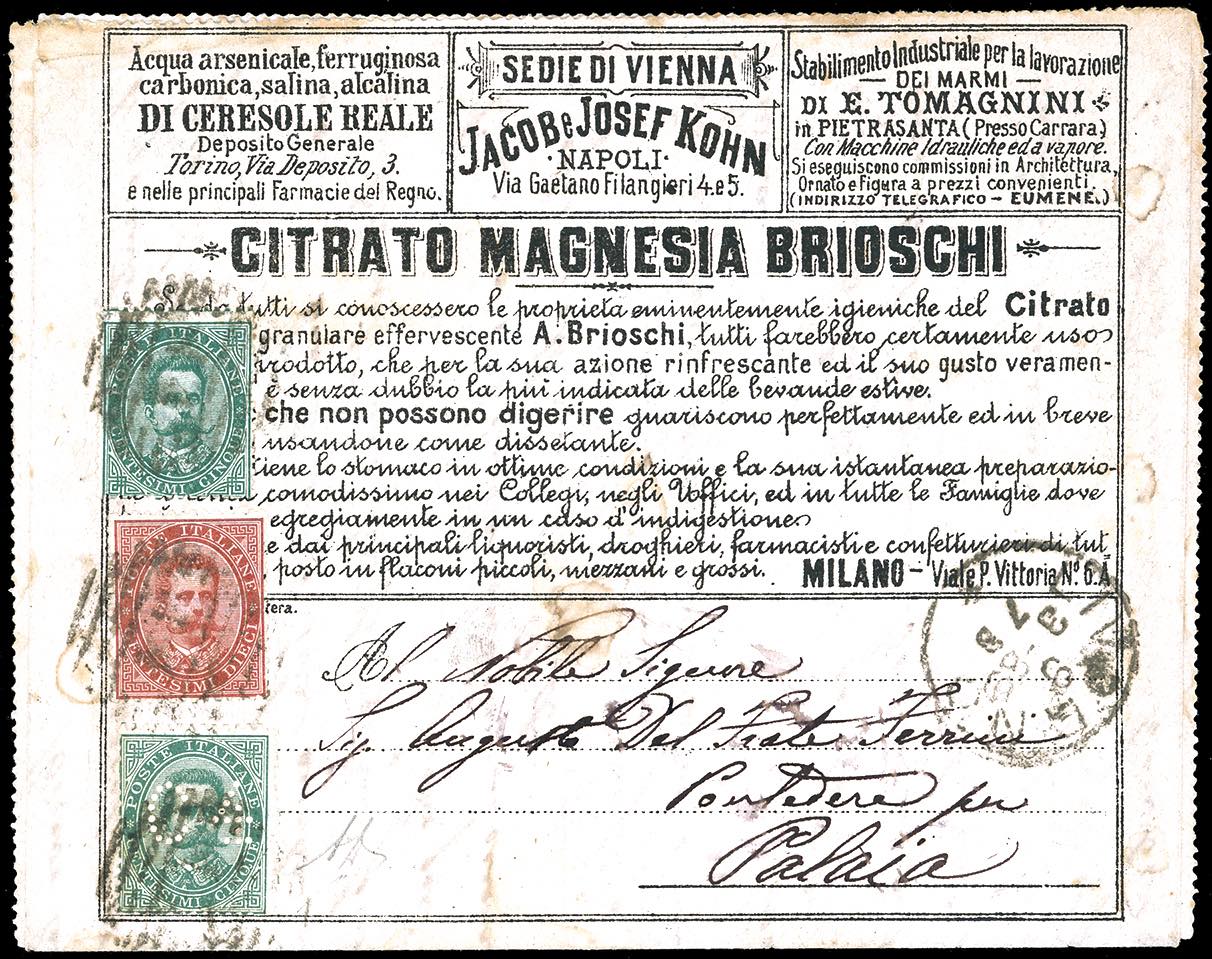 Acqua arsenicale, ferruginosa
carbonica, salina, alcalina
DI CERESOLE REALE
Deposito Generale
Torino, Via Deposito, 3.
e nelle principali Farmacie del Regno.
SEDIE DI VIENNA
JACOB e JOSEF KOHN
· NAPOLI ·
Via Gaetano Filangieri 4 e 5.
Stabilimento Industriale per la lavorazione
DEI MARMI
DI E. TOMAGNINI
in PIETRASANTA (Presso Carrara)
Con Macchine Idrauliche ed a vapore.
Si eseguiscono commissioni in Architettura,
Ornato e Figura a prezzi convenienti.
(INDIRIZZO TELEGRAFICO – EUMENE.)
CITRATO MAGNESIA BRIOSCHI
Se da tutti si conoscessero le proprietà eminentemente igieniche del Citrato
granulare effervescente A. Brioschi, tutti farebbero certamente uso
prodotto, che per la sua azione rinfrescante ed il suo gusto veramen-
è senza dubbio la più indicata delle bevande estive.
che non possono digerire guariscono perfettamente ed in breve
usandone come dissetante.
tiene lo stomaco in ottime condizioni e la sua istantanea preparazio-
comodissimo nei Collegi, negli Uffici, ed in tutte le Famiglie dove
egregiamente in un caso d'indigestione
e dai principali liquoristi, droghieri, farmacisti e confetturieri di tut-
posto in flaconi piccoli, mezzani e grossi. MILANO – Viale P. Vittoria No. 6. A
tera.
POSTE ITALIANE
CENTESIMI CINQUE
POSTE ITALIANE
CENTESIMI DIECI
POSTE ITALIANE
CENTESIMI CINQUE
Al Nobile Signore
Sig. Augusto Del Frate Ferrini
Pontedera per
Palaia